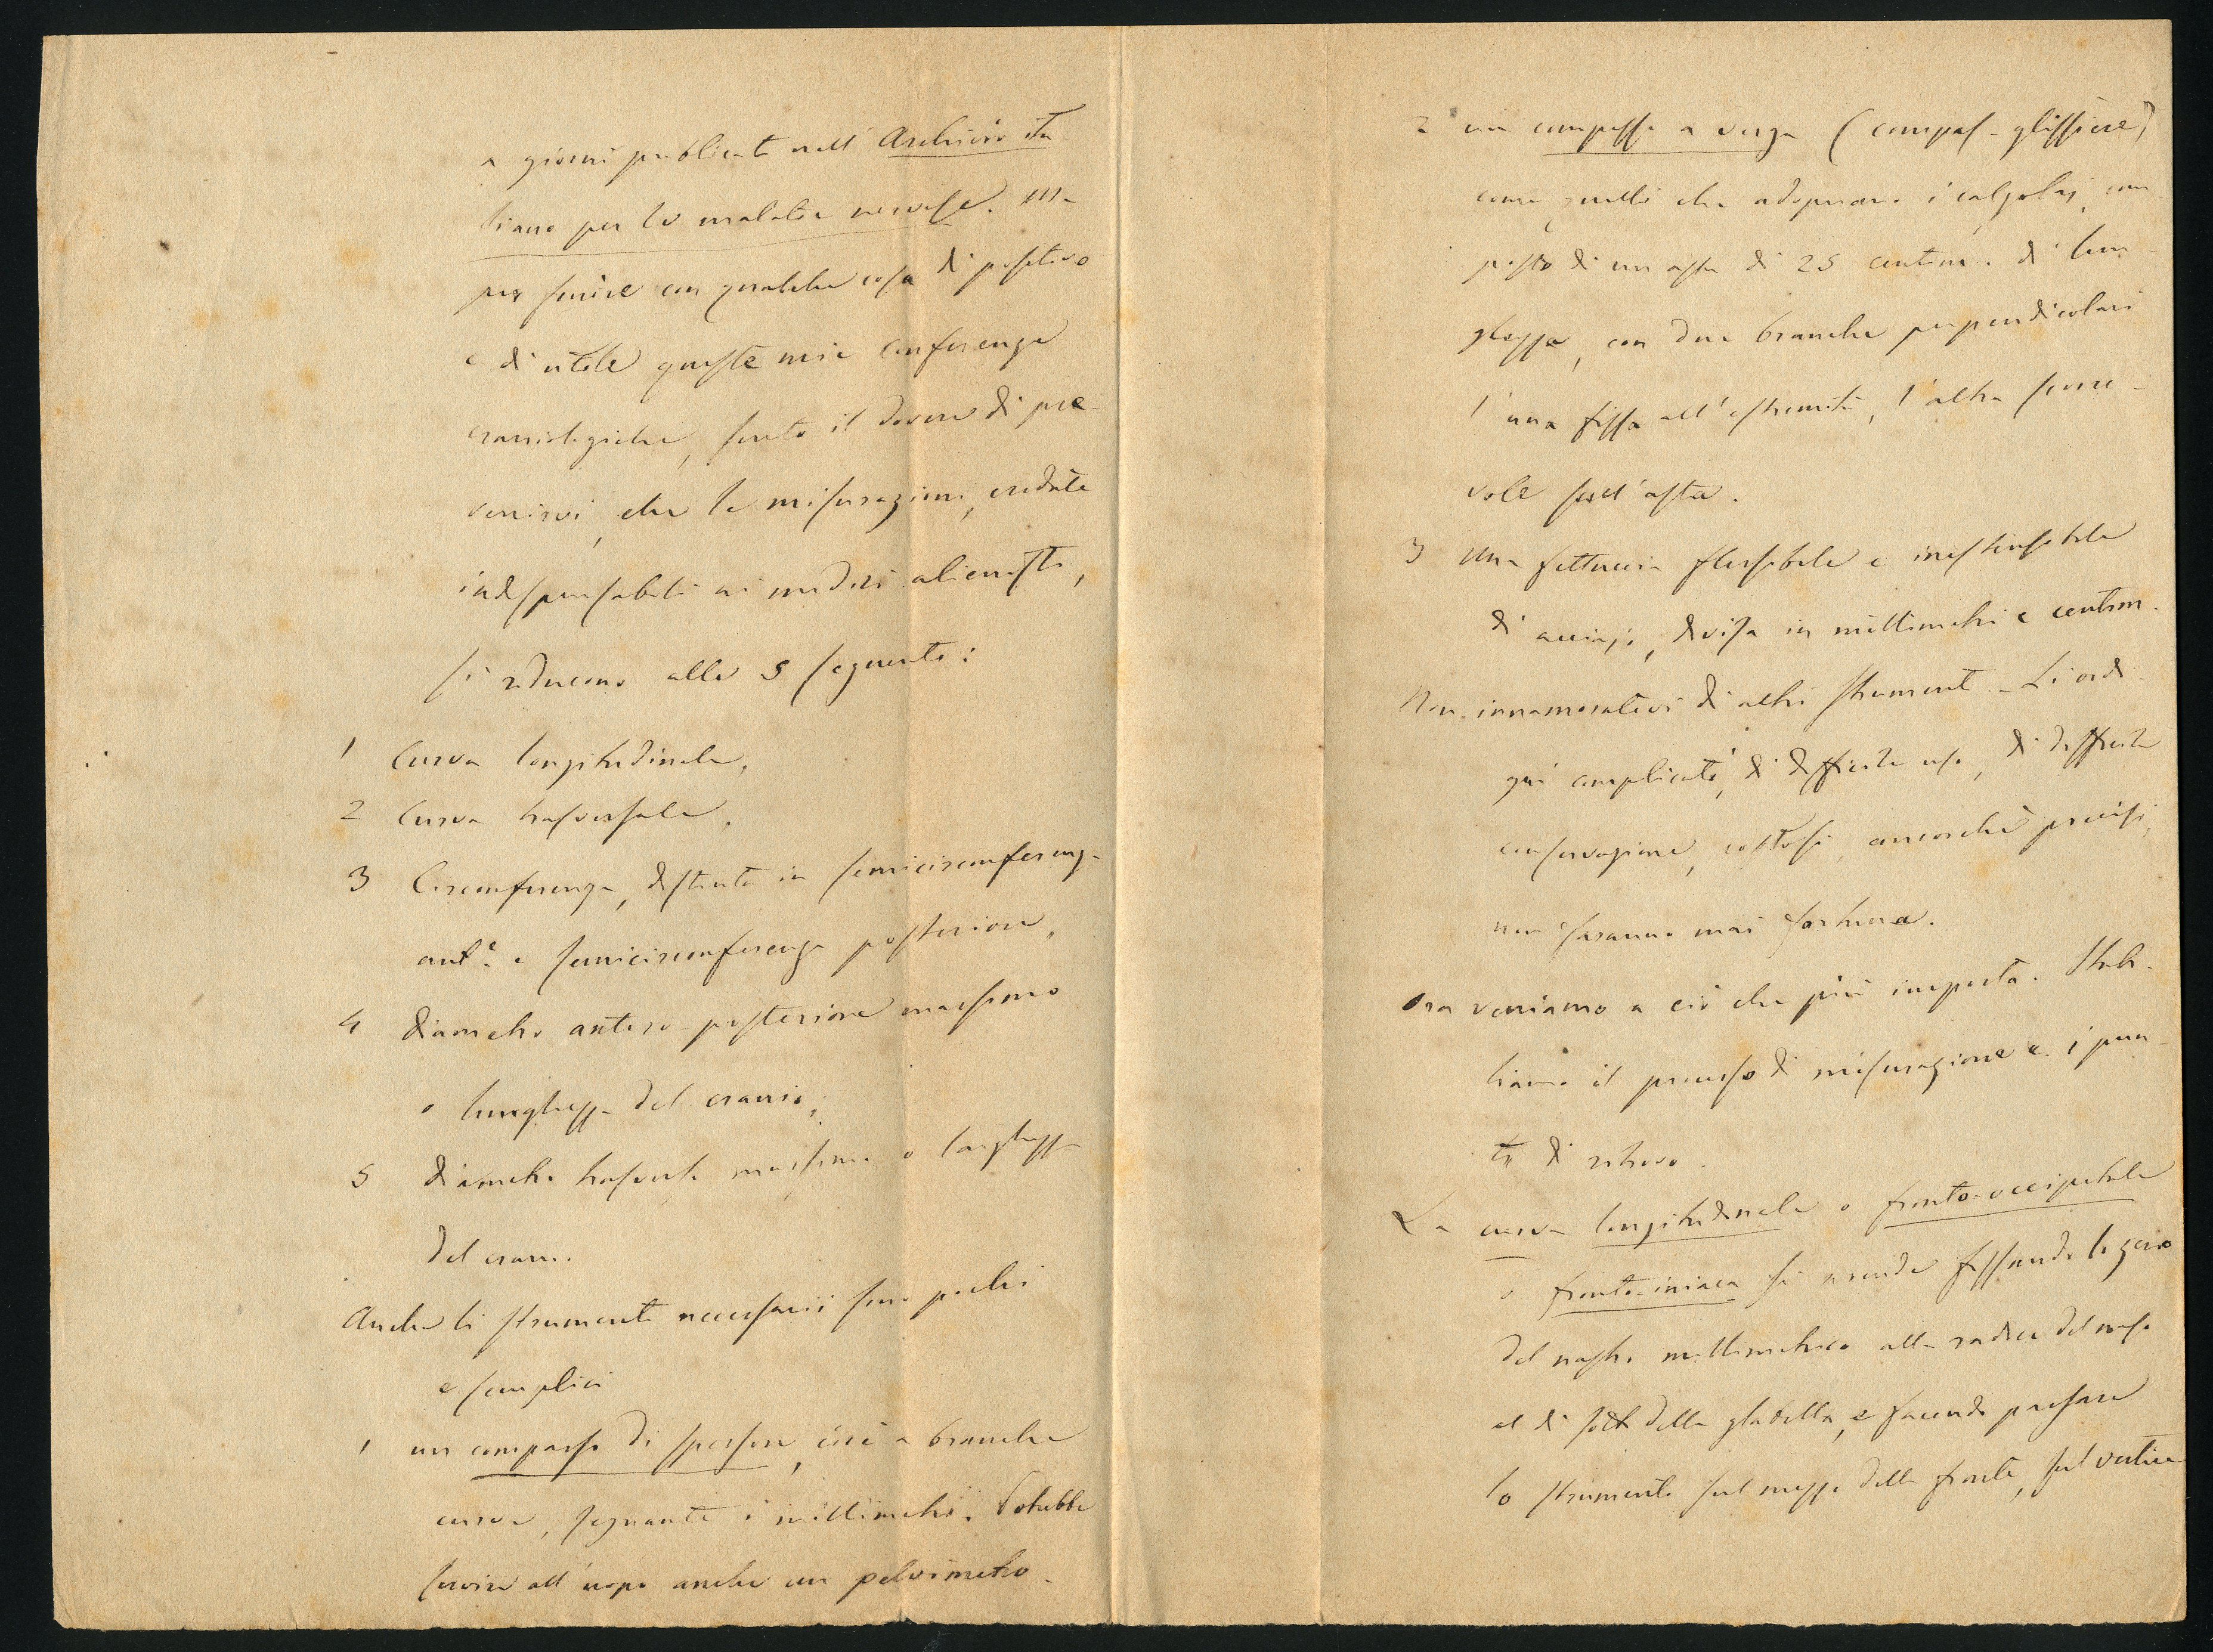 a giorni publicati nell' Archivio ita-
liano per le malatie nervose. Ma
per finire con qualche cosa di positivo
e di utile queste mie conferenze
craniologiche, sento il dovere di pre-
venirvi, che le misurazioni, credute
indispensabili ai medici alienisti,
si riducono alle 5 seguenti:
1 Curva longitudinale,
2 Curva trasversale,
3 Circonferenza, distinta in semicirconferenza
antᵉ. e semicirconferenza posteriore,
4 Diametro antero-posteriore massimo
o lunghezza del cranio;
5 Diametro trasverso massimo o larghezza
del cranio.
Anche li strumenti necessarii sono pochi
e semplici
1 un compasso di spessore, cioè a branche
curve, segnante i millimetri. Potrebbe
servire all'uopo anche un pelvimetro.
2 un compasso a verga (compas-glissière)
come quelli che adoprano i calzolaj, com
posto di un asta di 25 centim. di lun
ghezza, con due branche perpendicolari
l'una fissa all'estremità, l'altra scorre-
vole sull'asta.
3 Una fettuccia flessibile e inestensibile
di acciajo, divisa in millimetri e centim.
Non innamoratevi di altri strumenti. Li ordi
gni complicati, di difficile uso, di difficile
conservazione, costosi, ancorchè precisi,
non faranno mai fortuna.
Ora veniamo a ciò che più importa. Stabi-
liamo il processo di misurazione e i pun-
ti di ritrovo.
La curva longitudinale o fronto-occipitale
o fronto-iniaca si prende fissando lo zero
del nastro millimetrico alla radice del naso
al di sotto della glabella, e facendo passare
lo strumento sul mezzo della fronte, sul vertice